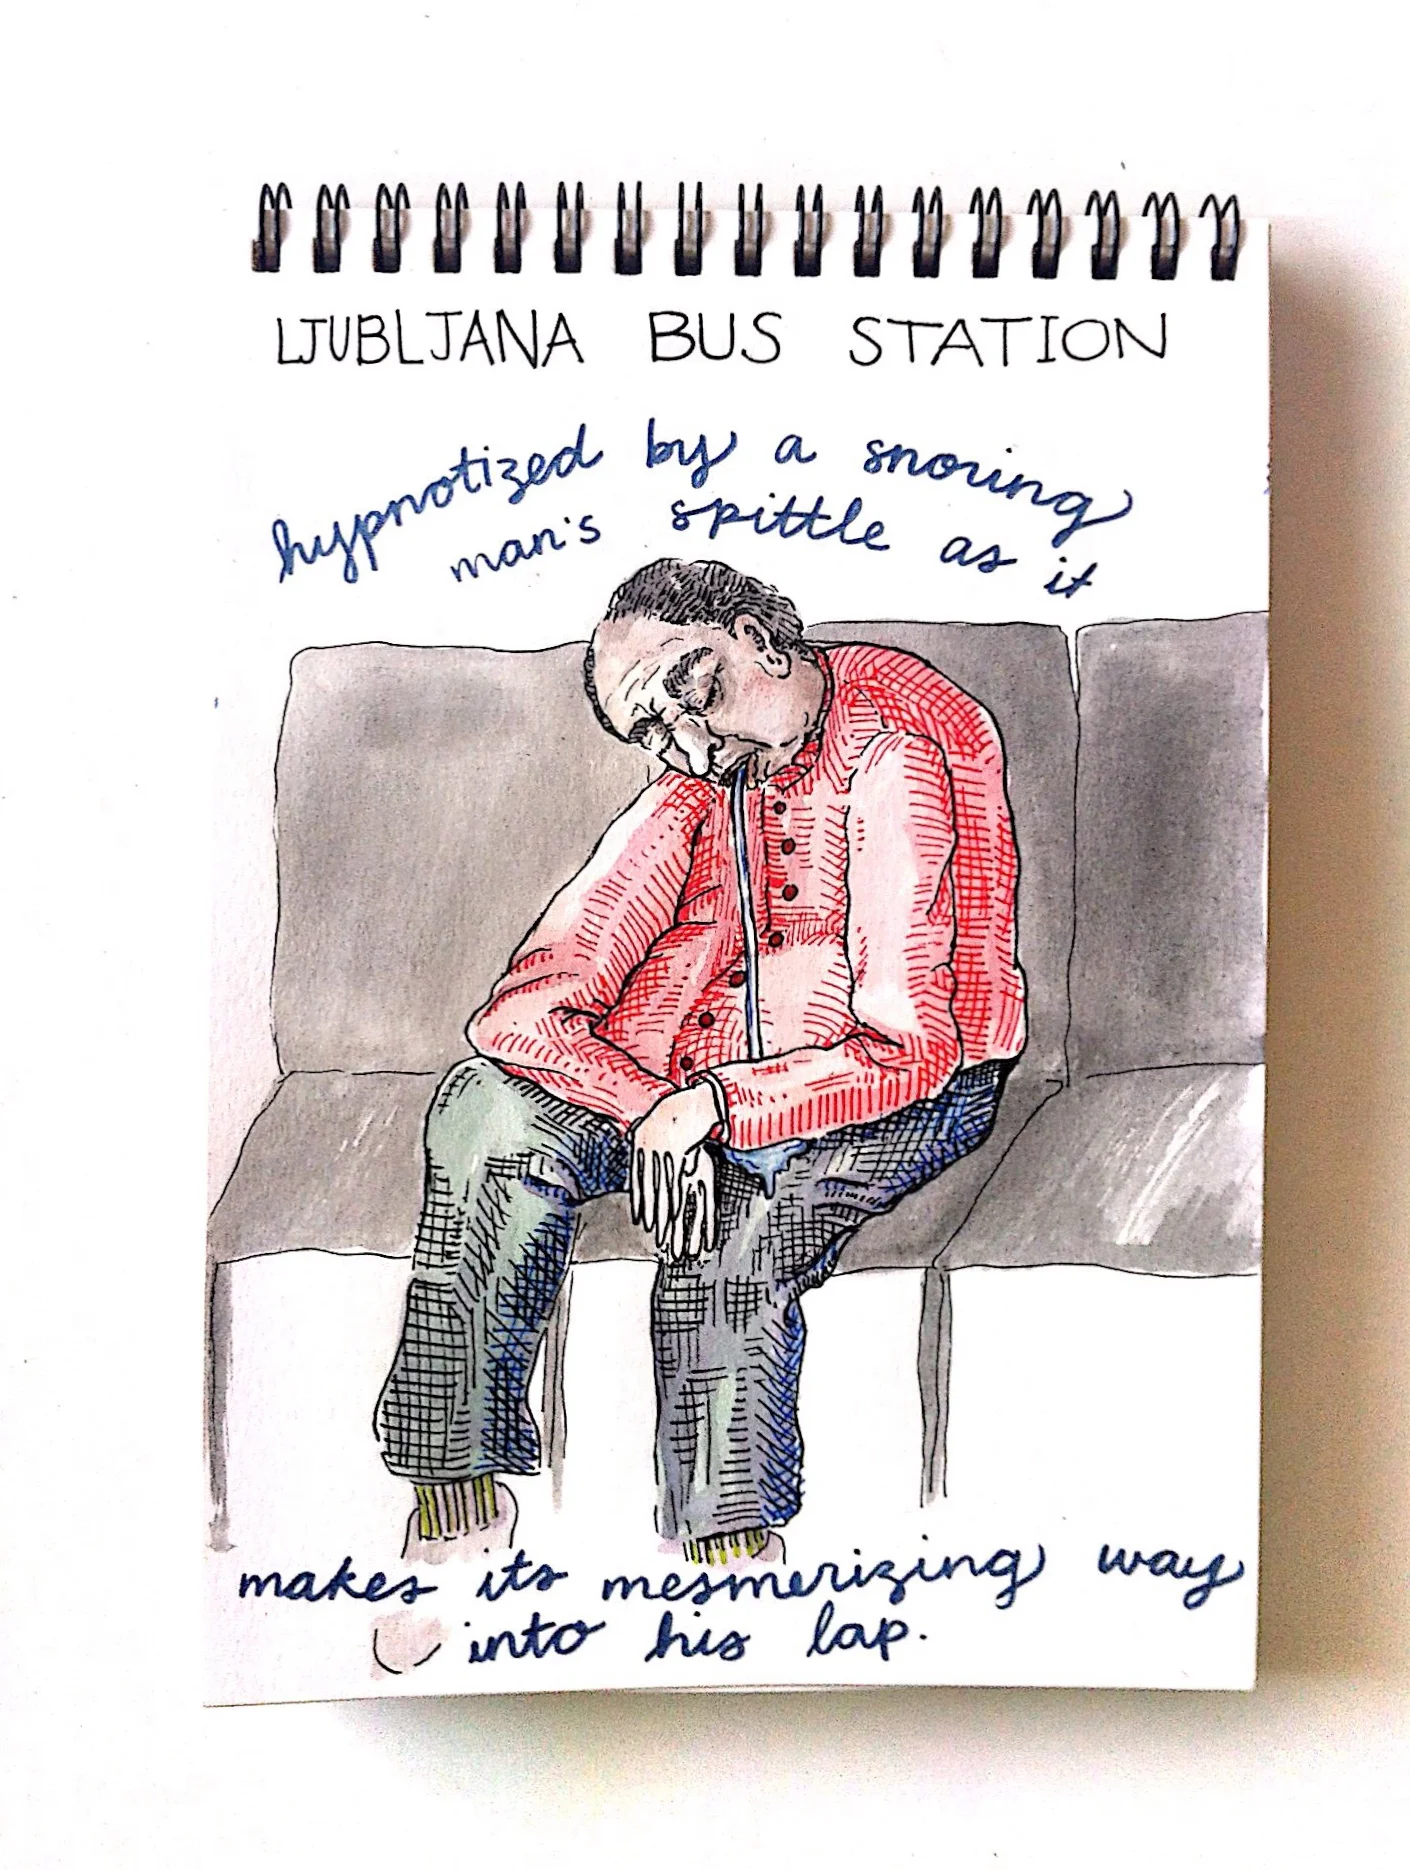 LJUBLJANA BUS STATION
hypnotized by a snoring
man's spittle as it
makes its mesmerizing way
into his lap.